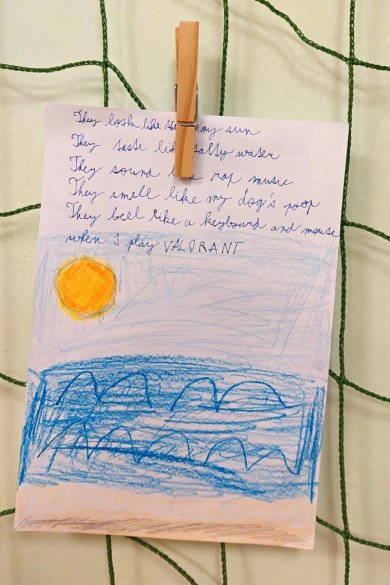 They look like the sunny sun
They taste like salty water
They sound like rap music
They smell like my dog's poop
They feel like a keyboard and mouse
when I play VALORANT